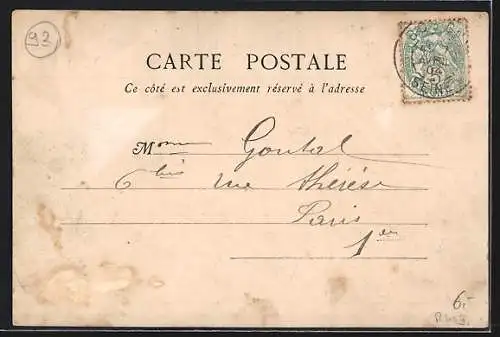 93
CARTE POSTALE
Ce côté est exclusivement réservé à l'adresse
Mme Goutal
6 bis rue Thérèse
Paris
1er
SEINE
6,-